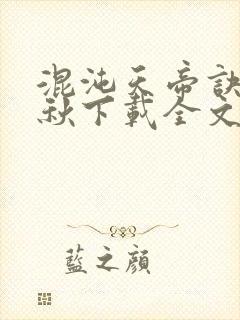 混沌天帝訣
秋下載全文
藍之顏